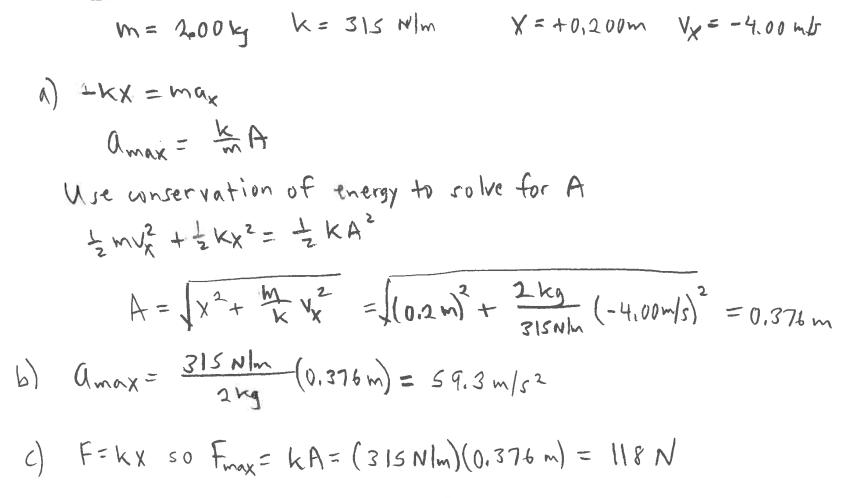 m = 2.00 kg k = 315 N/m x = +0.200m Vx = -4.00 m/s
a) -kx = max
amax = k/m A
Use conservation of energy to solve for A
1/2 mvx² + 1/2 kx² = 1/2 kA²
A = √(x² + m/k vx²) = √((0.2 m)² + 2 kg/315 N/m (-4.00 m/s)²) = 0.376 m
b) amax = 315 N/m / 2 kg (0.376 m) = 59.3 m/s²
c) F = kx so Fmax = kA = (315 N/m)(0.376 m) = 118 N